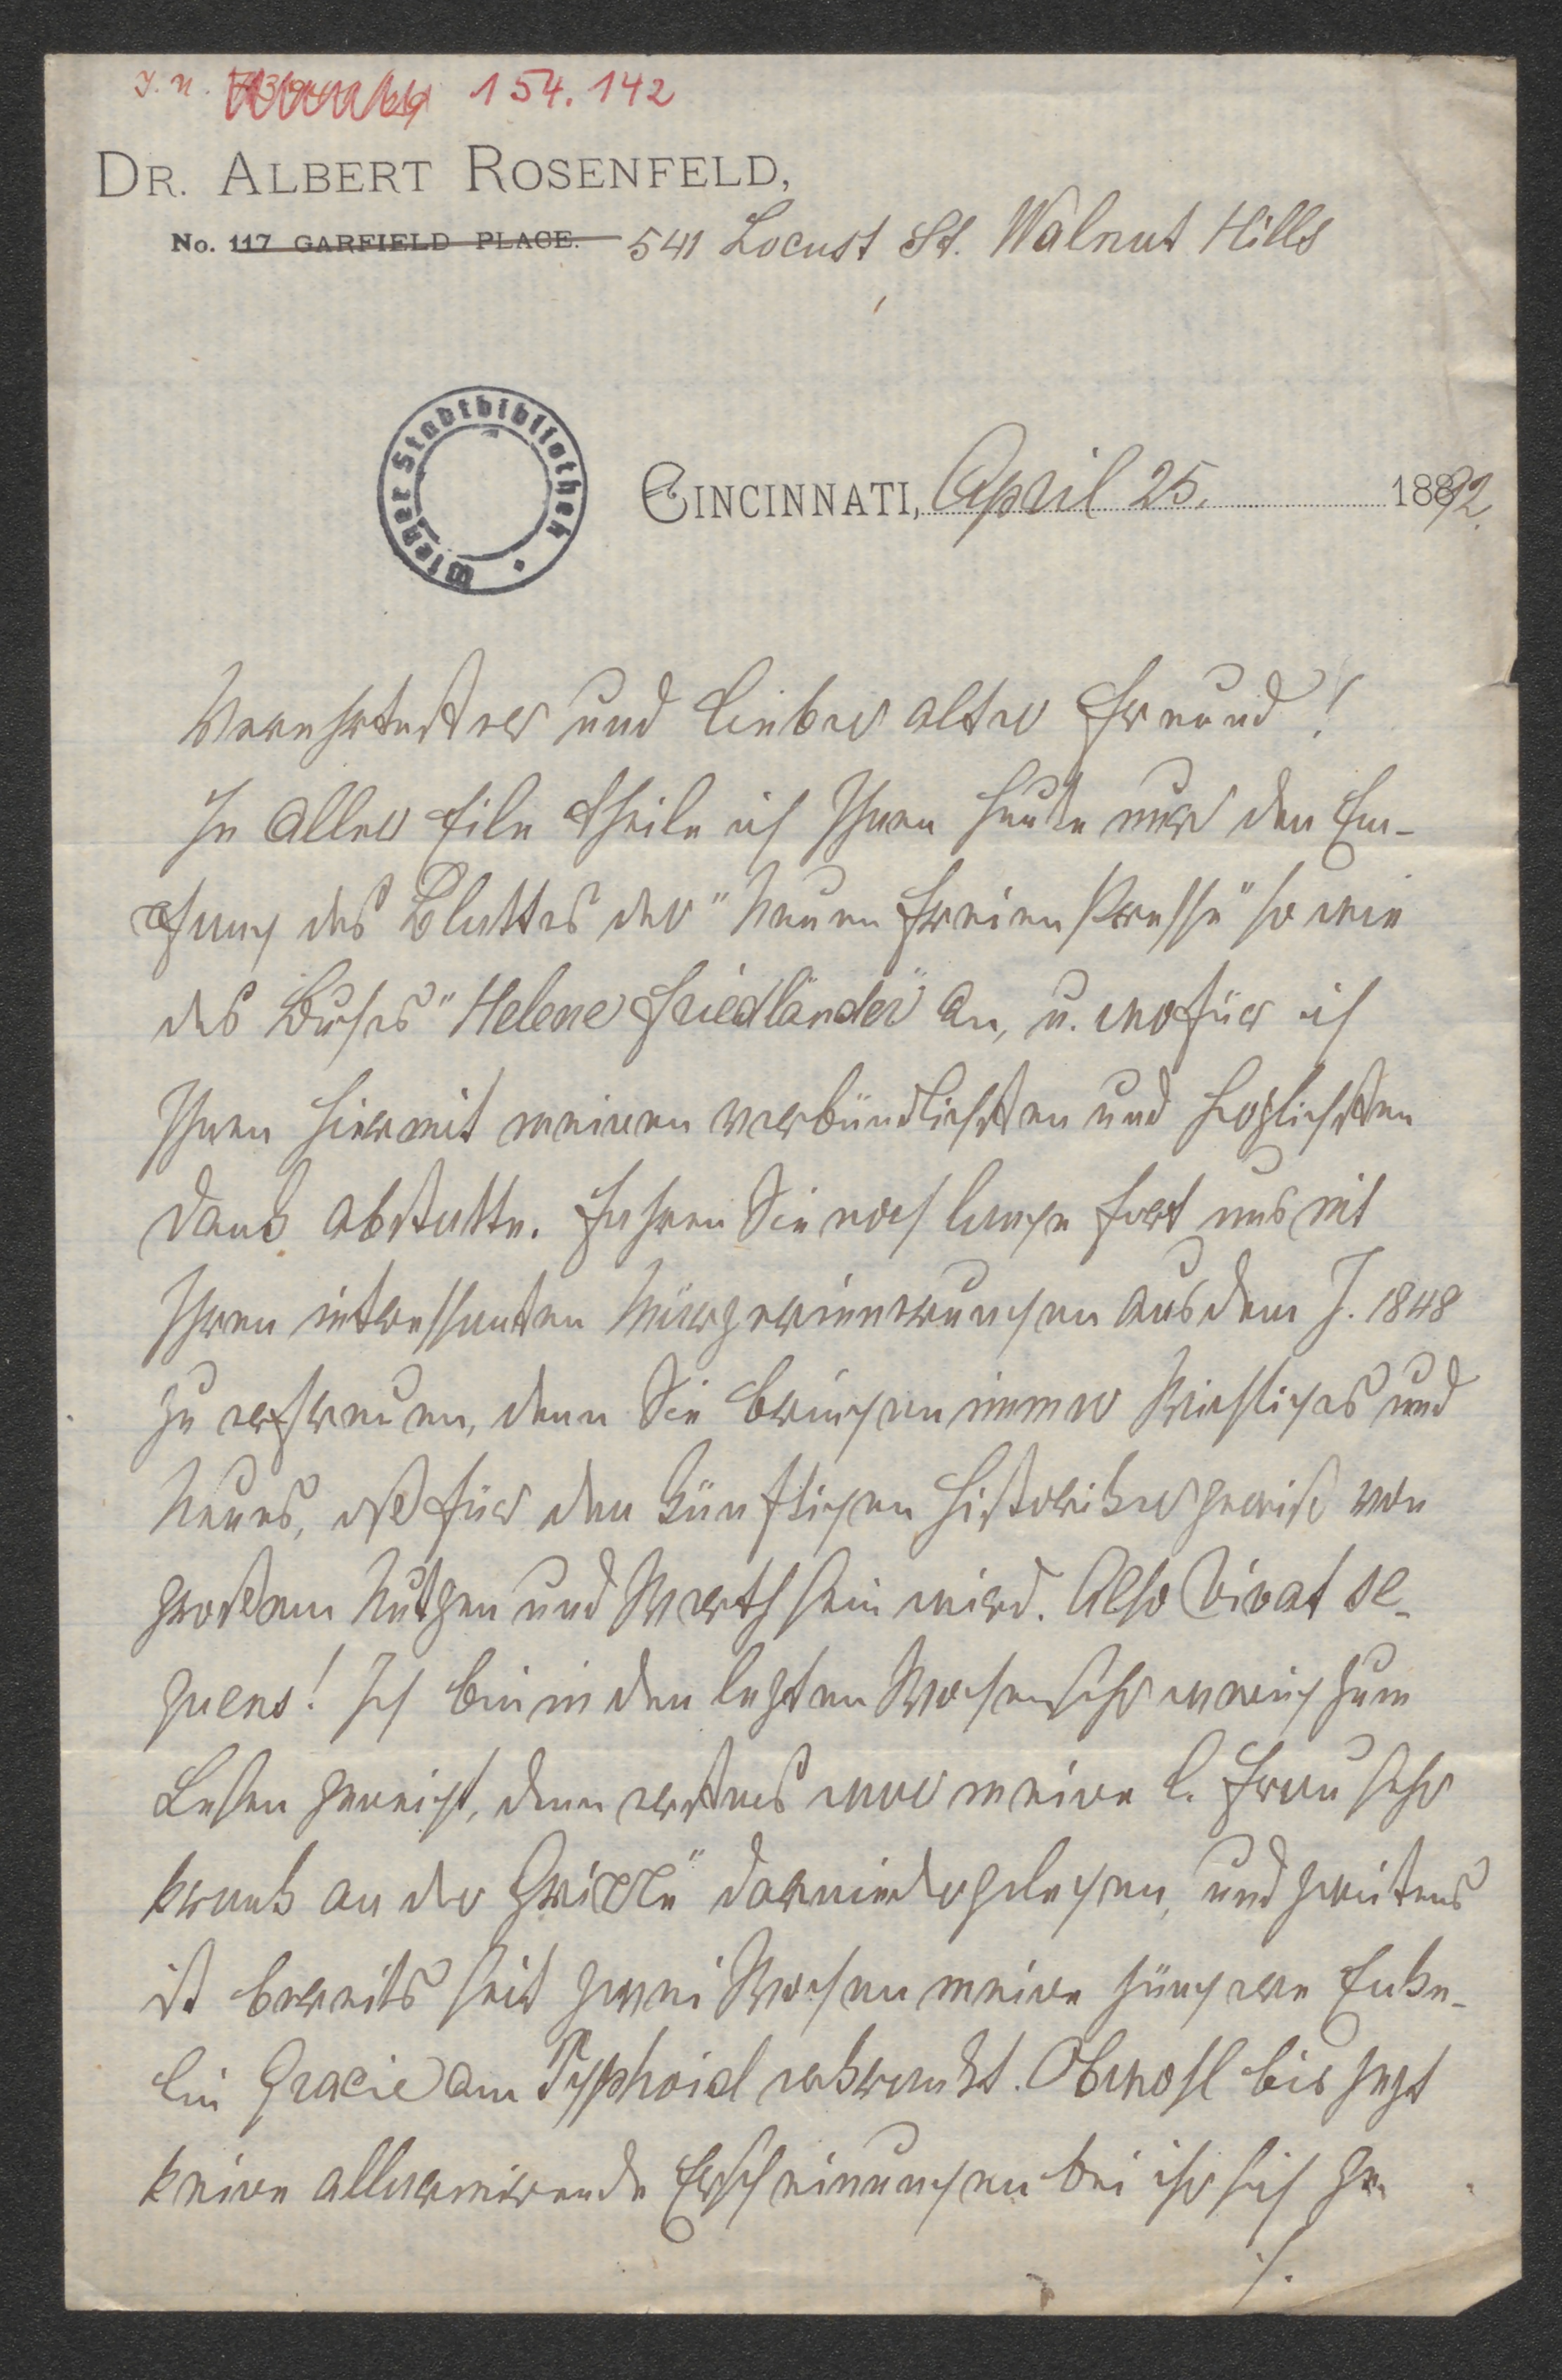 I. N. 154.142
DR. ALBERT ROSENFELD,
No. 117 GARFIELD PLACE. 541 Locust St. Walnut Hills
Wiener Stadtbibliothek
CINCINNATI, April 25. 1892.
Verehrtester und lieber alter Freund!
In aller Eile theile ich Ihnen heute nur den Em-
pfang des Blattes der "Neuen freien Presse" so wie
des Buches "Helene Friedländer" an, u. wofür ich
Ihnen hiermit meinen verbündlichsten und herzlichsten
Dank abstatte. Fahren Sie noch lange fort uns mit
Ihren intressanten Märzerinnerungen aus dem J. 1848
zu erfreuen, denn Sie bringen immer Wichtiges und
Neues, das für den künftigen Historiker gewiß von
großem Nutzen und Werth sein wird. Also Vivat se-
quens! Ich bin in den letzten Wochen sehr wenig zum
Lesen geneigt, denn erstens war meine l. Frau sehr
krank an der Grippe" darniedergelegen, und zweitens
ist bereits seit zwei Wochen meine jüngere Enke-
lin Gracie am Typhoid erkrankt. Obwohl bis jetzt
keine allarmirende Erscheinungen bei ihr sich ge-
./.